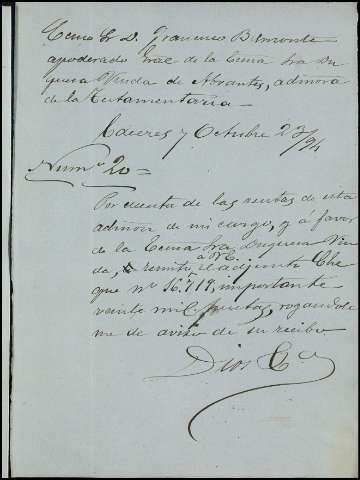 Excmo Sr D. Francisco Belmonte
apoderado Gral de la Excma Sra Du
quesa Viuda de Abrantes, admora
de la Testamentaria
Cáceres y Octubre 23/94
Numº 20 =
Por cuenta de las rentas de esta
admon de mi cargo, y á favor
de la Excma Sra Duquesa Viu
da, remito á VE. el adjunto Che
que nº 16.719, importante
veinte mil pesetas, rogandole
me de aviso de su recibo
Dios Ca